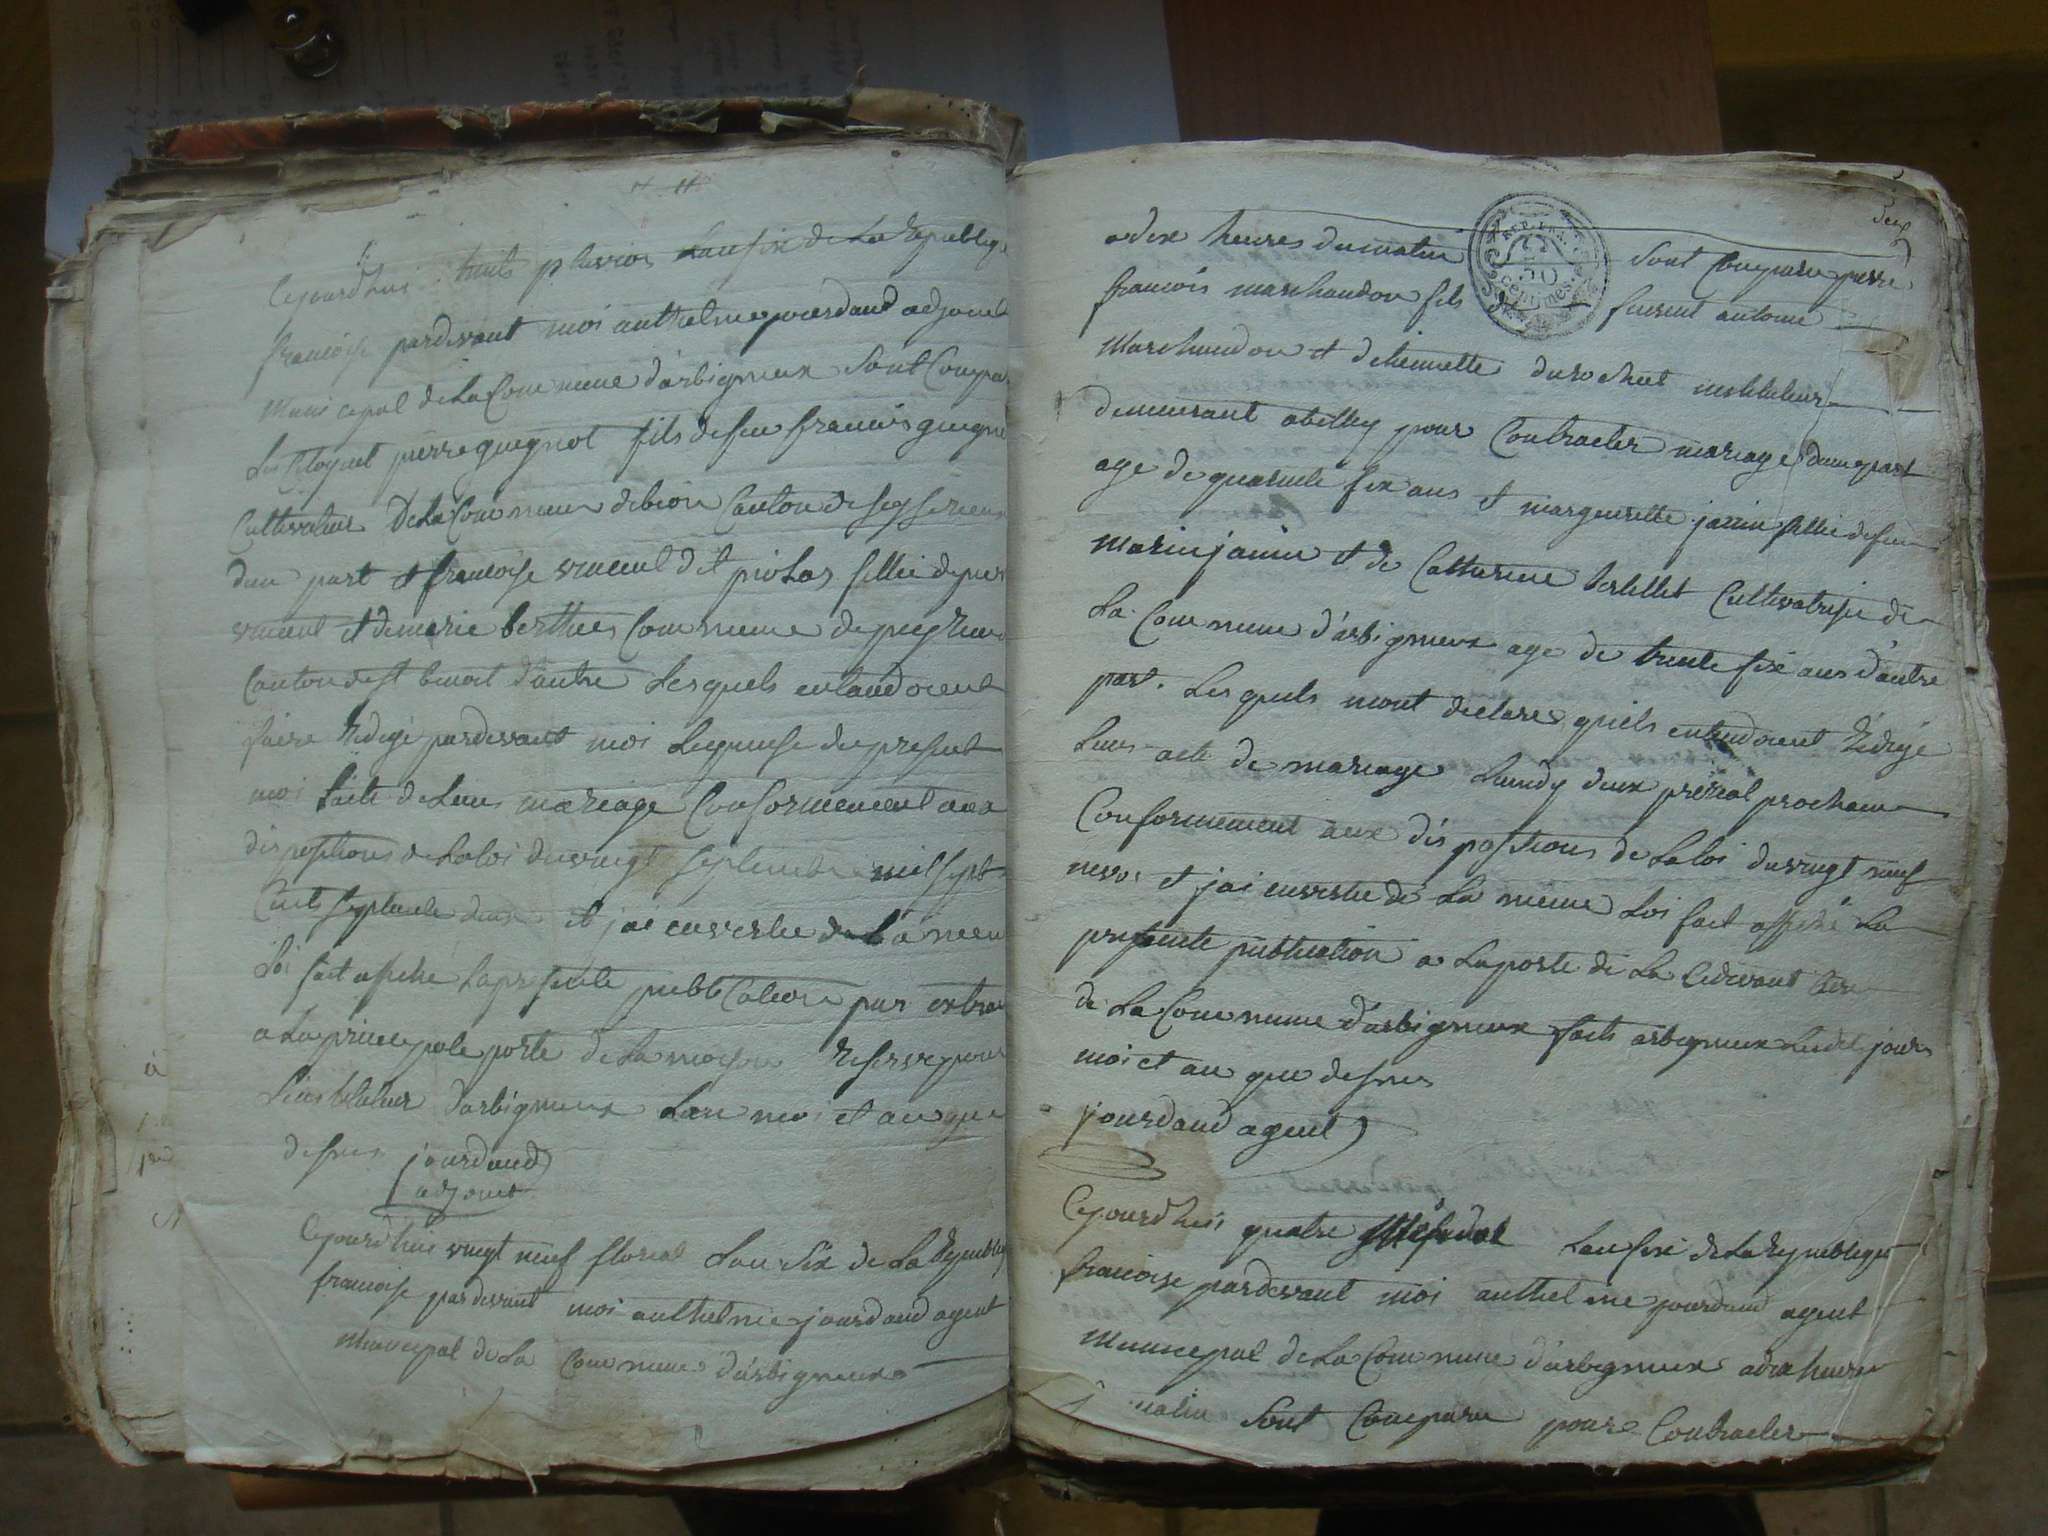 Cejourdhui huits pluvios Lan six de La Republiq
francoise pardevant moi anthelme jourdand adjoint
municepal de La Commune d'arbignieux Sont Compar
Les Citoyens pierre guegnot fils de feu francois guegno
Cultivateur De La Commune de bion Canton de seyssrieux
dun part et francoise vincent dit piolas fillie de pier
vincent et de marie berthet Commune de peyzieu
Canton de st benoit d'autre Lesquels entandoient
faire Redigé pardevant moi Le quinse du present
moi Lacte de Leur mariage Conformement aux
dispositions de La loi du vingt septembre mil sept
Cents septente deux et j'ai en vertu de La meme
Loi fait affiché La presente publication par extrai
a La principale porte de La maison Reservé pour
Linstituteur d'arbignieux Lan moi et an que
desus jourdand
adjoint
Cejourdhuis vingt neuf floreal Lan Six de La Republiq
francoise pardevant moi anthelme jourdand agent
Municepal de La Commune d'arbignieux
deux
a dix heures du matin Sont Comparu pierre
REP. FRA.
50
centimes
francois marchandon fils de furent antoine
Marchandon et detiennette durochat instituteur
demeurant a belley pour Contracter mariage dune part
age de quarente six ans et marguerite janin fillie de feu
Marin janin et de Catherine bertellet Cultivatrise de
La Commune d'arbignieux age de trente six ans d'autre
part. Les quels mont declarer quils entendoient Rédigé
Leur acte de mariage Lundy deux prérial prochain
Conformement aux dispositions de La loi du vingt neuf
nevos et j'ai en vertu de La meme Loi fait affiché La
presente publication a La porte de La Cidevant Cure
de La Commune d'arbignieux faits arbignieux Lesdit jours
moi et an que desus
jourdand agent
Cejourdhuis quatre Lan six de La Republique
francoise pardevant moi anthelme jourdand agent
Municepal de La Commune d'arbignieux a dix heures
matin Sont Comparu pour Contracter